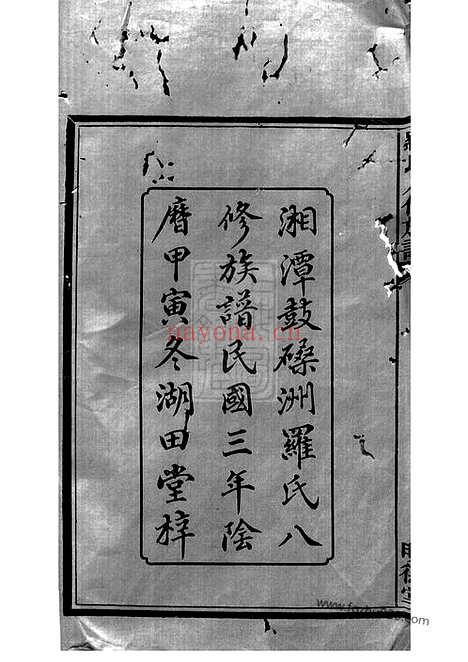 湘潭鼓磉洲羅氏八
修族譜民國三年陰
曆甲寅冬湖田堂梓
nayona.cn